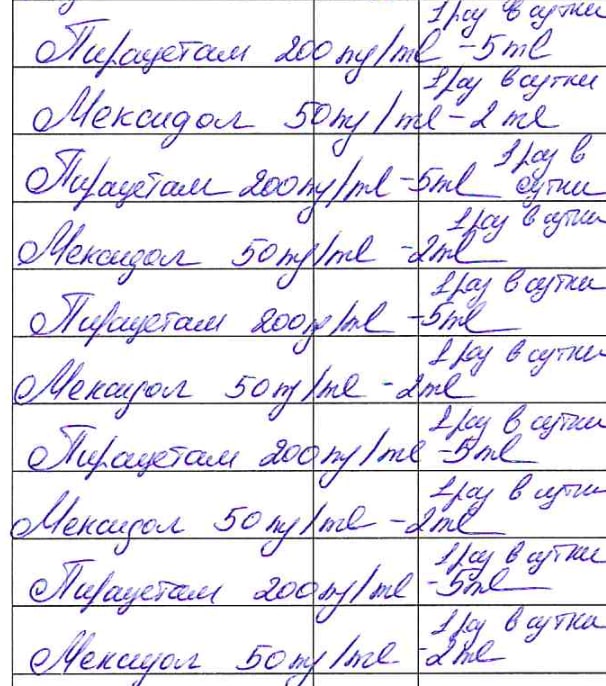 Пирацетам 200 mg/ml - 5 ml 1 раз в сутки
Мексидол 50 mg/ml - 2 ml 1 раз в сутки
Пирацетам 200 mg/ml - 5 ml 1 раз в сутки
Мексидол 50 mg/ml - 2 ml 1 раз в сутки
Пирацетам 200 mg/ml - 5 ml 1 раз в сутки
Мексидол 50 mg/ml - 2 ml 1 раз в сутки
Пирацетам 200 mg/ml - 5 ml 1 раз в сутки
Мексидол 50 mg/ml - 2 ml 1 раз в сутки
Пирацетам 200 mg/ml - 5 ml 1 раз в сутки
Мексидол 50 mg/ml - 2 ml 1 раз в сутки